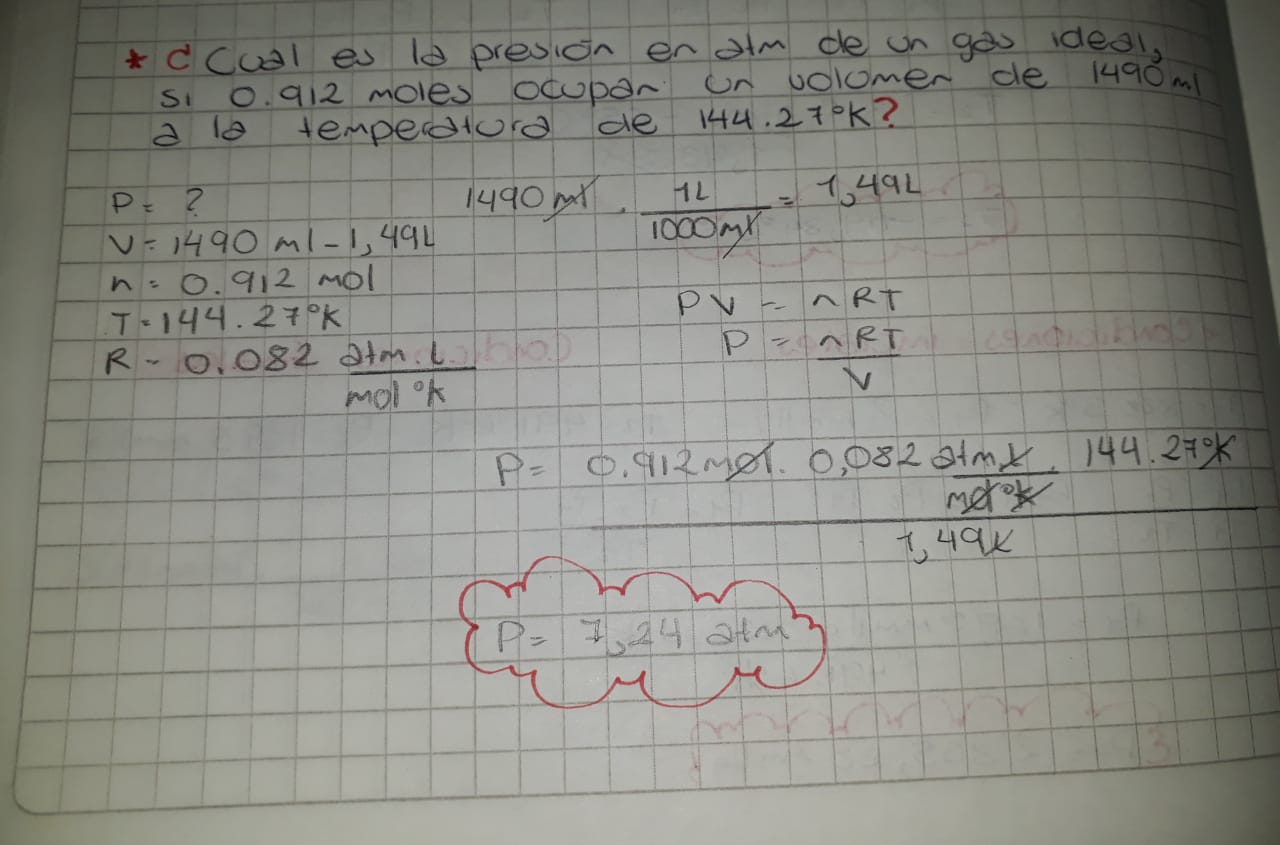 * ¿ Cual es la presión en atm de un gas ideal,
si 0.912 moles ocupan un volumen de 1490 ml
a la temperatura de 144.27°K?
P = ?
1490 ml . 1L / 1000 ml = 1,49L
V = 1490 ml - 1,49L
n = 0.912 mol
T = 144.27°K
R - 0.082 atm.L / mol °K
PV = nRT
P = nRT / V
P = 0.912 mol . 0,082 atm L / mol °K . 144.27°K
1,49L
P = 7,24 atm